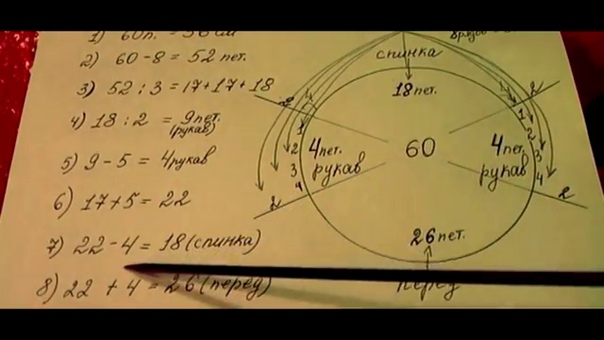 1) 60п. = 56 см
2) 60-8 = 52 пет.
3) 52 : 3 = 17+17+18
4) 18 : 2 = 9пет.
(рукав)
5) 9-5 = 4рукав
6) 17+5 = 22
7) 22-4 = 18(спинка)
8) 22 + 4 = 26(перед)
спинка
18пет.
2
2
1
2
3
4
4пет.
рукав
60
4пет.
рукав
1
2
3
4
2
2
26пет.
перед